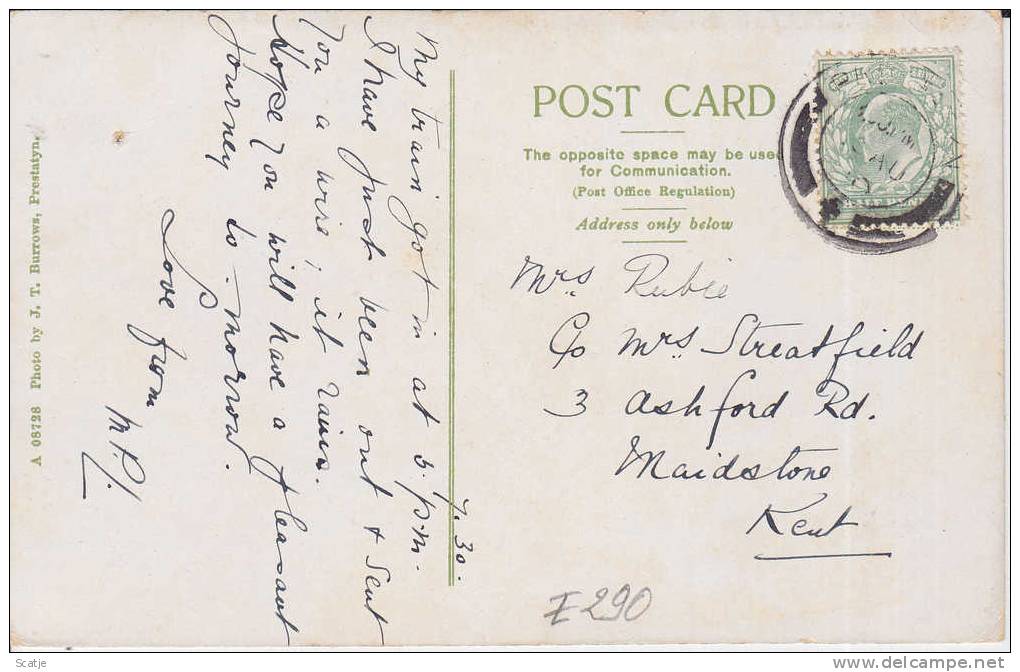 7.30.
My train got in at 3. pm.
I have just been out & sent
you a wire, it rains.
Hope you will have a pleasant
journey to-morrow.
Love from
A 08728 Photo by J. T. Burrows, Prestatyn.
POST CARD
The opposite space may be used
for Communication.
(Post Office Regulation)
Address only below
Mrs Rubie
C/o Mrs. Streatfield
3 Ashford Rd.
Maidstone
Kent
£290
Scatje
delcampe.net